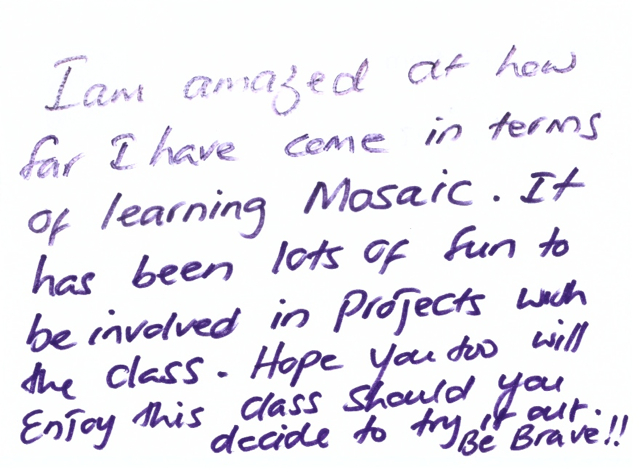 I am amazed at how
far I have come in terms
of learning Mosaic. It
has been lots of fun to
be involved in Projects with
the class. Hope you too will
Enjoy this class should you
decide to try it out.
Be Brave!!